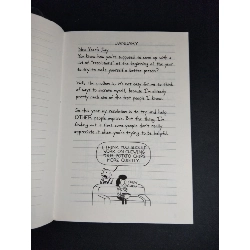 JANUARY
New Year's Day
You know how you're supposed to come up with a
list of "resolutions" at the beginning of the year
to try to make yourself a better person?
Well, the problem is, it's not easy for me to think
of ways to improve myself, because I'm already
pretty much one of the best people I know.
So this year my resolution is to try and help
OTHER people improve. But the thing I'm
finding out is that some people don't really
appreciate it when you're trying to be helpful.
I THINK YOU SHOULD
WORK ON CHEWING
YOUR POTATO CHIPS
MORE QUIETLY.